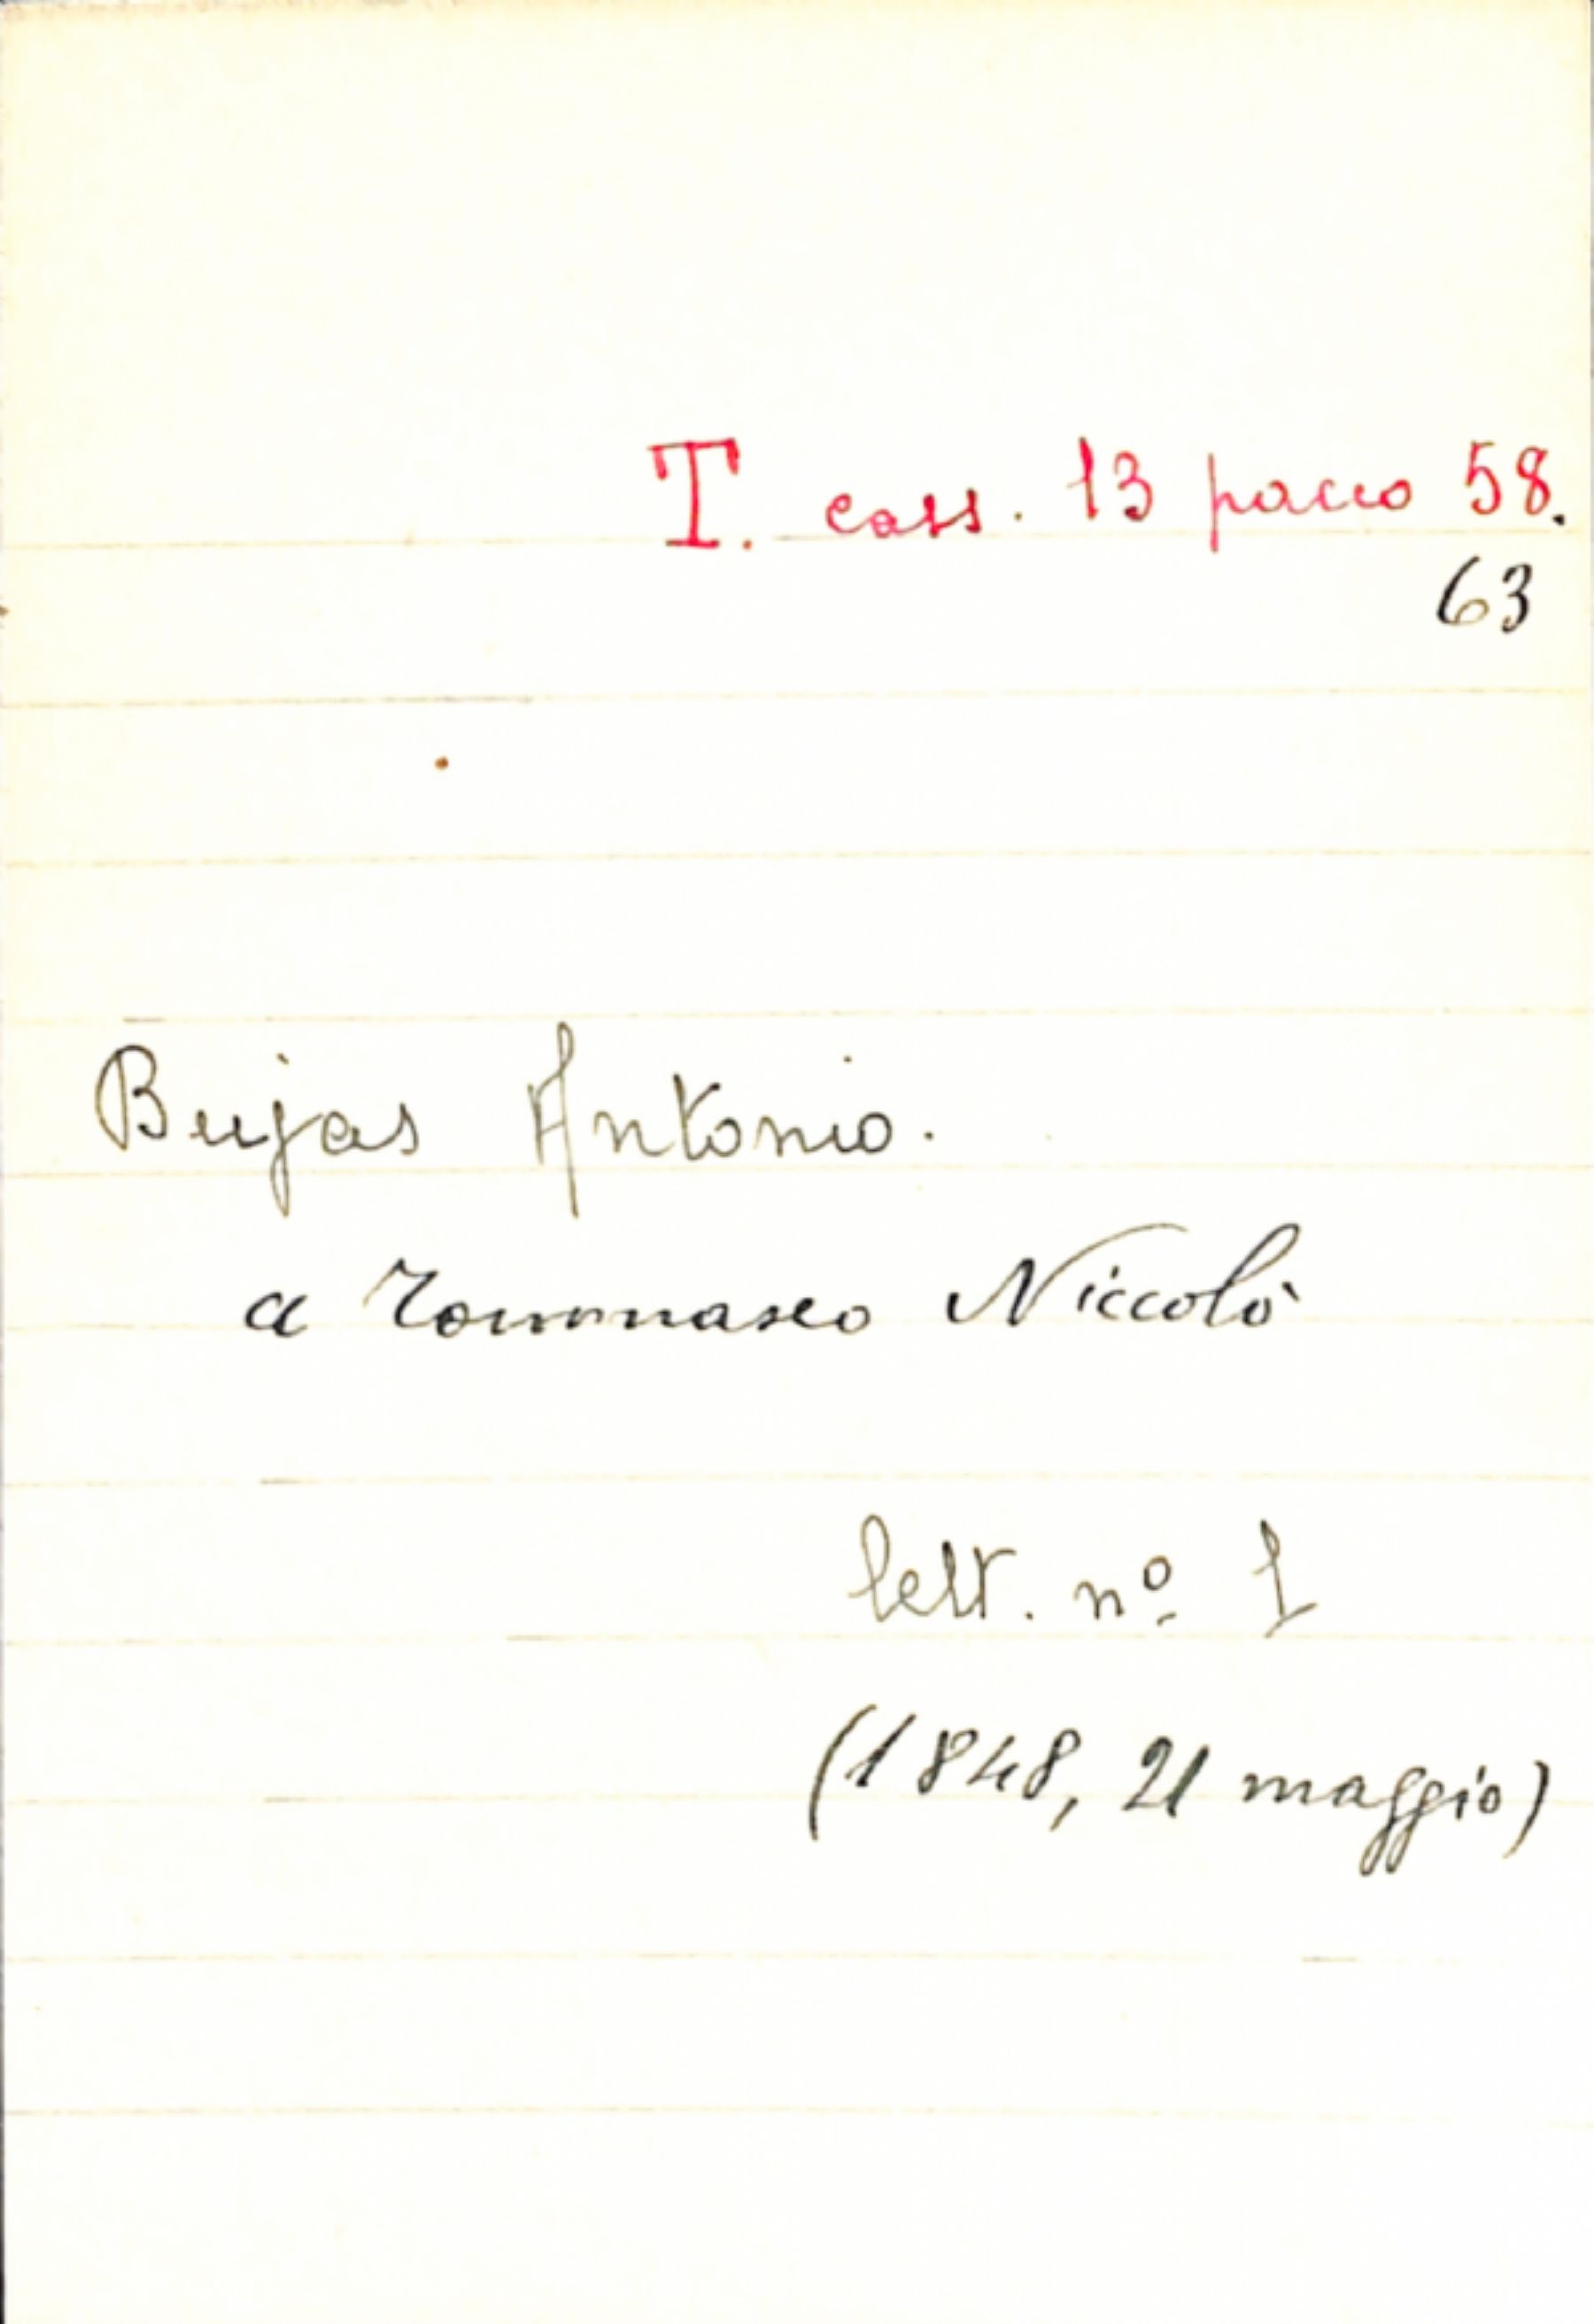 T. cass. 13 pacco 58.
63
Bujas Antonio.
a Tommaseo Niccolò
lett. nº 1
(1848, 21 maggio)